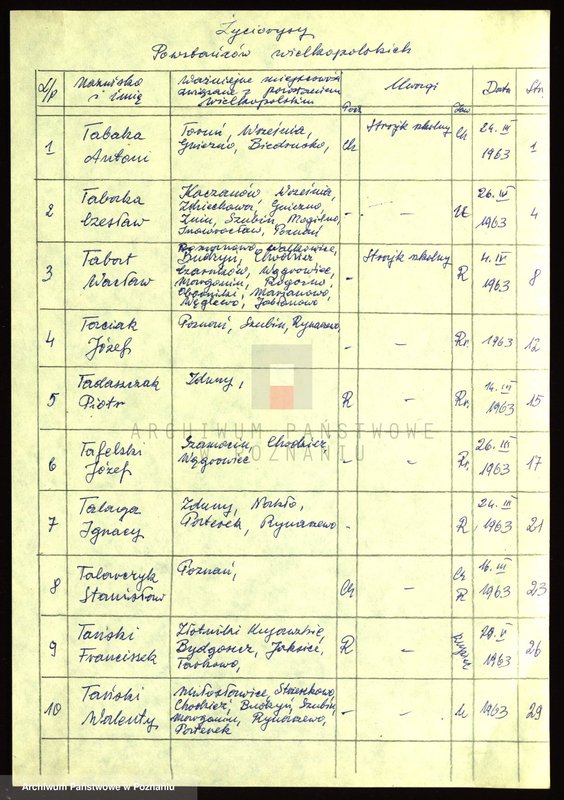 Życiorysy
Powstańców wielkopolskich
L/p Nazwisko i imię Ważniejsze miejscowości związane z powstaniem wielkopolskim Uwagi Data Str
1 Tabaka Antoni Toruń, Września, Gniezno, Biedrusko, Ch Strajk szkolny Ch 24.III 1963 1
2 Tabaka Czesław Kaczanów Września, Zdziechowa, Gniezno, Żnin, Szubin, Mogilno, Inowrocław, Poznań - - 26.IV 1963 4
3 Wacław Budzyń, Chodzież Czarnków, Wągrowiec, Margonin, Rogoźno, Oborniki, - Strajk szkolny R 4.IV 1963 8
4 Torciak Józef Poznań, Szubin, Rynarzewo, - - Rr. 1963 12
5 Tadaszczak Piotr Zduny, R - Rr. 14.III 1963 15
6 Tafelski Józef Szamocin, Chodzież, Wągrowiec - - Rr. 26.III 1963 17
7 Ignacy Zduny, Nakło, Porterek, Rynarzewo - R 24.III 1963 21
8 Stanisław Poznań, Ch - Ch R 16.III 1963 23
9 Tański Franciszek Złotniki Kujawskie, Bydgoszcz, Jaksice, R - 29.V 1963 26
10 Tański Walenty Chodzież, Budzyń, Szubin, Margonin, Rynarzewo, Porterek - - 1963 29
ARCHIWUM PAŃSTWOWE
W POZNANIU
Archiwum Państwowe w Poznaniu